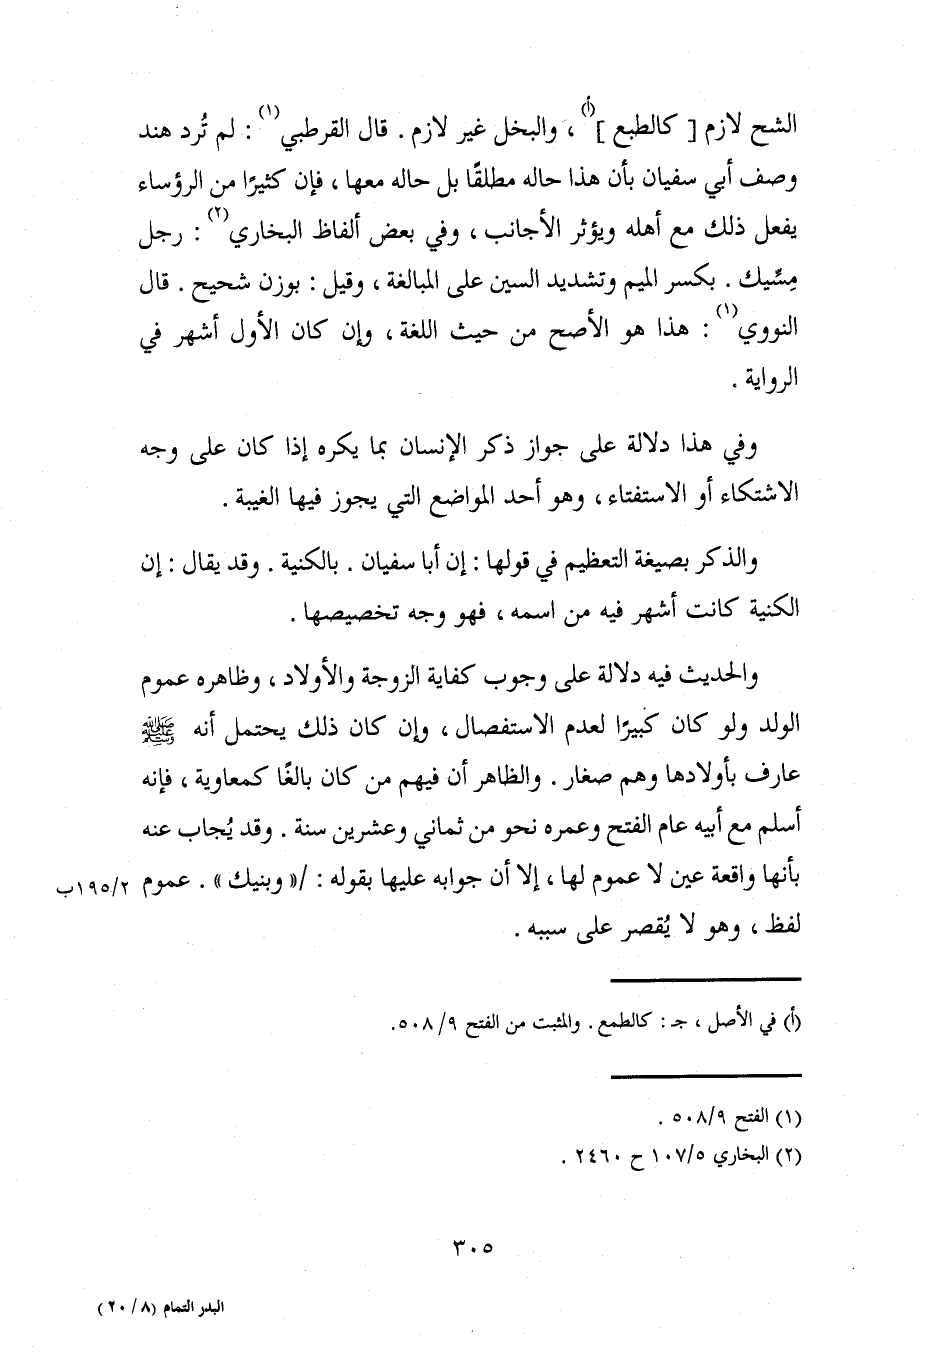 الشح لازم [ كالطبع ](أ) ، والبخل غير لازم . قال القرطبي(١) : لم تُرد هند
وصف أبي سفيان بأن هذا حاله مطلقًا بل حاله معها ، فإن كثيرًا من الرؤساء
يفعل ذلك مع أهله ويؤثر الأجانب ، وفي بعض ألفاظ البخاري(٢) : رجل
مِسِّيك . بكسر الميم وتشديد السين على المبالغة ، وقيل : بوزن شحيح . قال
النووي(١) : هذا هو الأصح من حيث اللغة ، وإن كان الأول أشهر في
الرواية .
وفي هذا دلالة على جواز ذكر الإنسان بما يكره إذا كان على وجه
الاشتكاء أو الاستفتاء ، وهو أحد المواضع التي يجوز فيها الغيبة .
والذكر بصيغة التعظيم في قولها : إن أبا سفيان . بالكنية . وقد يقال : إن
الكنية كانت أشهر فيه من اسمه ، فهو وجه تخصيصها .
والحديث فيه دلالة على وجوب كفاية الزوجة والأولاد ، وظاهره عموم
الولد ولو كان كبيرًا لعدم الاستفصال ، وإن كان ذلك يحتمل أنه ﷺ
عارف بأولادها وهم صغار . والظاهر أن فيهم من كان بالغًا كمعاوية ، فإنه
أسلم مع أبيه عام الفتح وعمره نحو من ثماني وعشرين سنة . وقد يُجاب عنه
بأنها واقعة عين لا عموم لها ، إلا أن جوابه عليها بقوله : /« وبنيك » . عموم ١٩٥/٢ب
لفظ ، وهو لا يُقصر على سببه .
(أ) في الأصل ، جـ : كالطمع . والمثبت من الفتح ٥٠٨/٩.
(١) الفتح ٥٠٨/٩ .
(٢) البخاري ١٠٧/٥ ح ٢٤٦٠ .
٣٠٥
البدر التمام (٢٠/٨)